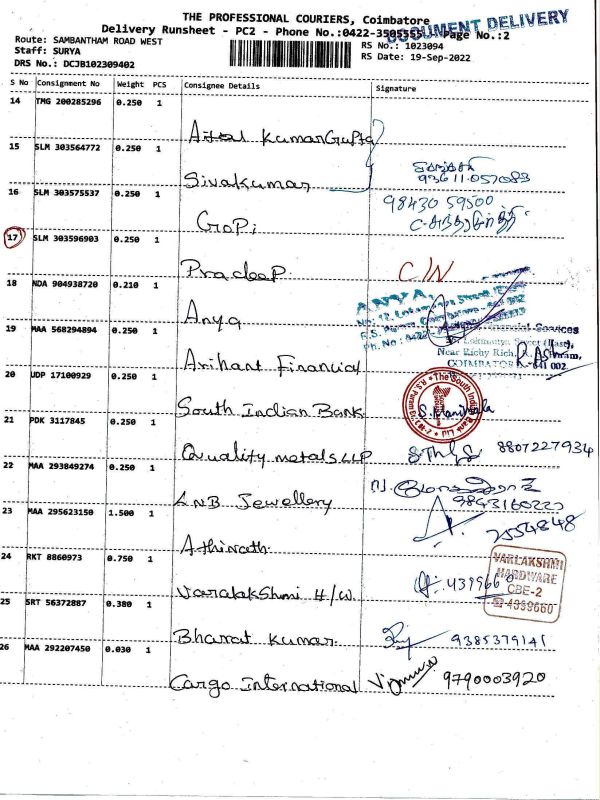 THE PROFESSIONAL COURIERS, Coimbatore
DOCUMENT DELIVERY
Delivery Runsheet - PC2 - Phone No.:0422-3505555 Page No.:2
Route: SAMBANTHAM ROAD WEST
RS No.: 1023094
Staff: SURYA
RS Date: 19-Sep-2022
DRS No.: DCJB102309402
S No Consignment No Weight PCS Consignee Details Signature
14 TMG 200285296 0.250 1
Kumar Gupta
15 SLM 303564772 0.250 1
93611 057083
Sivakumar
16 SLM 303575537 0.250 1
98430 59500
GoPi
17 SLM 303596903 0.250 1
PradeeP C/N
18 NDA 904938720 0.210 1
ANYA
Anya
19 MAA 568294894 0.250 1
Financial Services
Near Kichy Rich,
COIMBATORE
Arihant Financial
20 UDP 17100929 0.250 1
The South Indian Bank Ltd
South Indian Bank
21 PDK 3117845 0.250 1
Quality metals LLP 8807227934
22 MAA 293849274 0.250 1
ANB Jewellery
23 MAA 295623150 1.500 1
2554848
24 RKT 8860973 0.750 1
VARLAKSHMI
HARDWARE
CBE-2
4399660
Varalakshmi H/W
25 SRT 56372887 0.380 1
Bharat Kumar 9385379141
26 MAA 292207450 0.030 1
Cargo International 9790003920